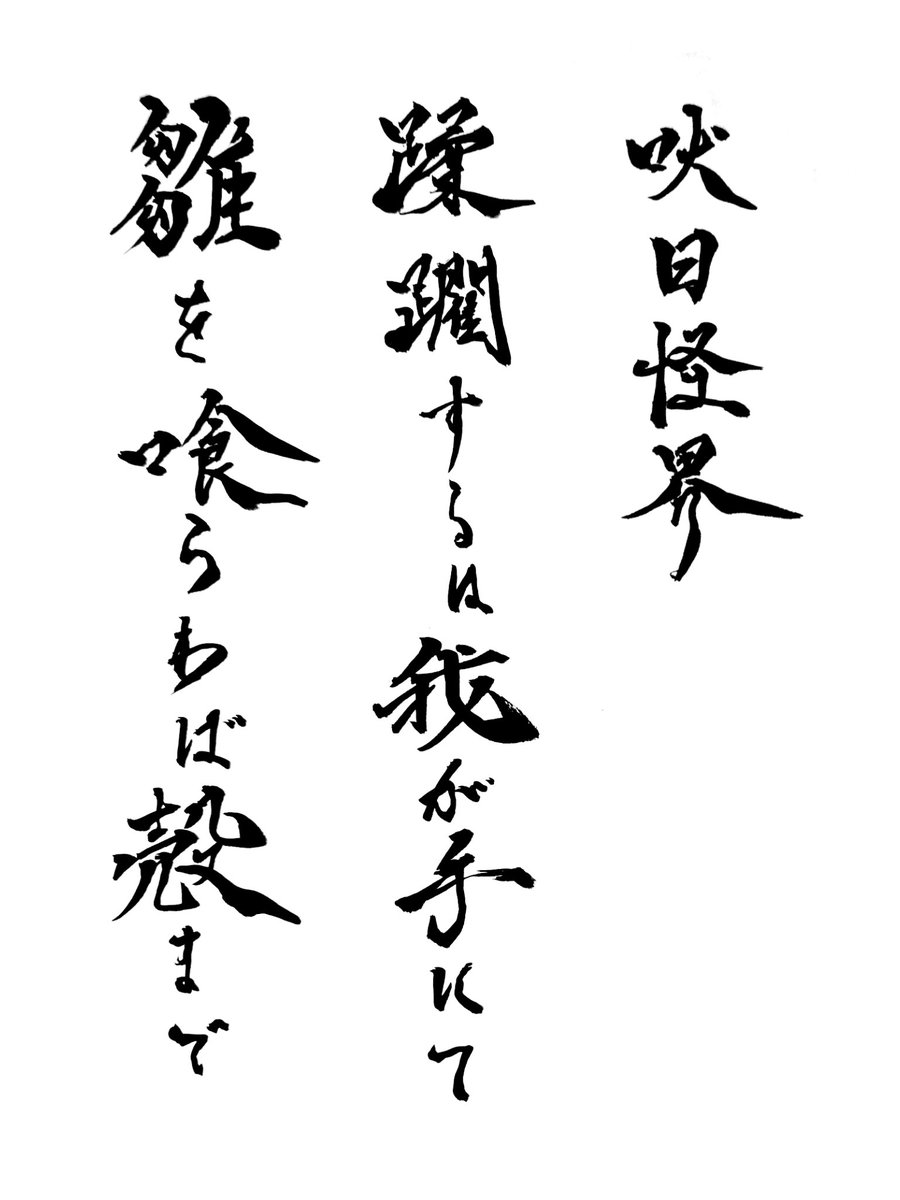 吠日怪界
蹂躙するは我が手にて
雛を喰らわば殻まで